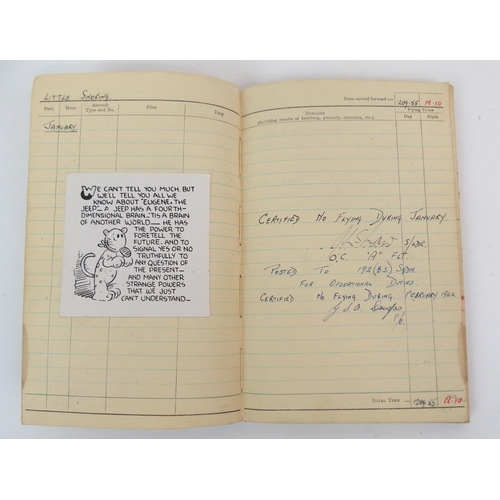 LITTLE SNORING.
Date Hour Aircraft Type and No. Pilot Duty
JANUARY.
WE CAN'T TELL YOU MUCH, BUT
WE'LL TELL YOU ALL WE
KNOW ABOUT "EUGENE, THE
JEEP"- A JEEP HAS A FOURTH-
DIMENSIONAL BRAIN-'TIS A BRAIN
OF ANOTHER WORLD-- HE HAS
THE POWER TO
FORETELL THE
FUTURE, AND TO
SIGNAL YES OR NO
TRUTHFULLY TO
ANY QUESTION OF
THE PRESENT-
AND MANY OTHER
STRANGE POWERS
THAT WE JUST
CAN'T UNDERSTAND--
Time carried forward :— 209.55 12.10
REMARKS Flying Times
(including results of bombing, gunnery, exercises, etc.) Day Night
CERTIFIED NO FLYING DURING JANUARY.
S/LDR.
O.C. "A" FLT.
POSTED TO 192 (B.S.) SQDN.
FOR OPERATIONAL DUTIES.
CERTIFIED NO FLYING DURING FEBRUARY
TOTAL TIME 209.55 12.10